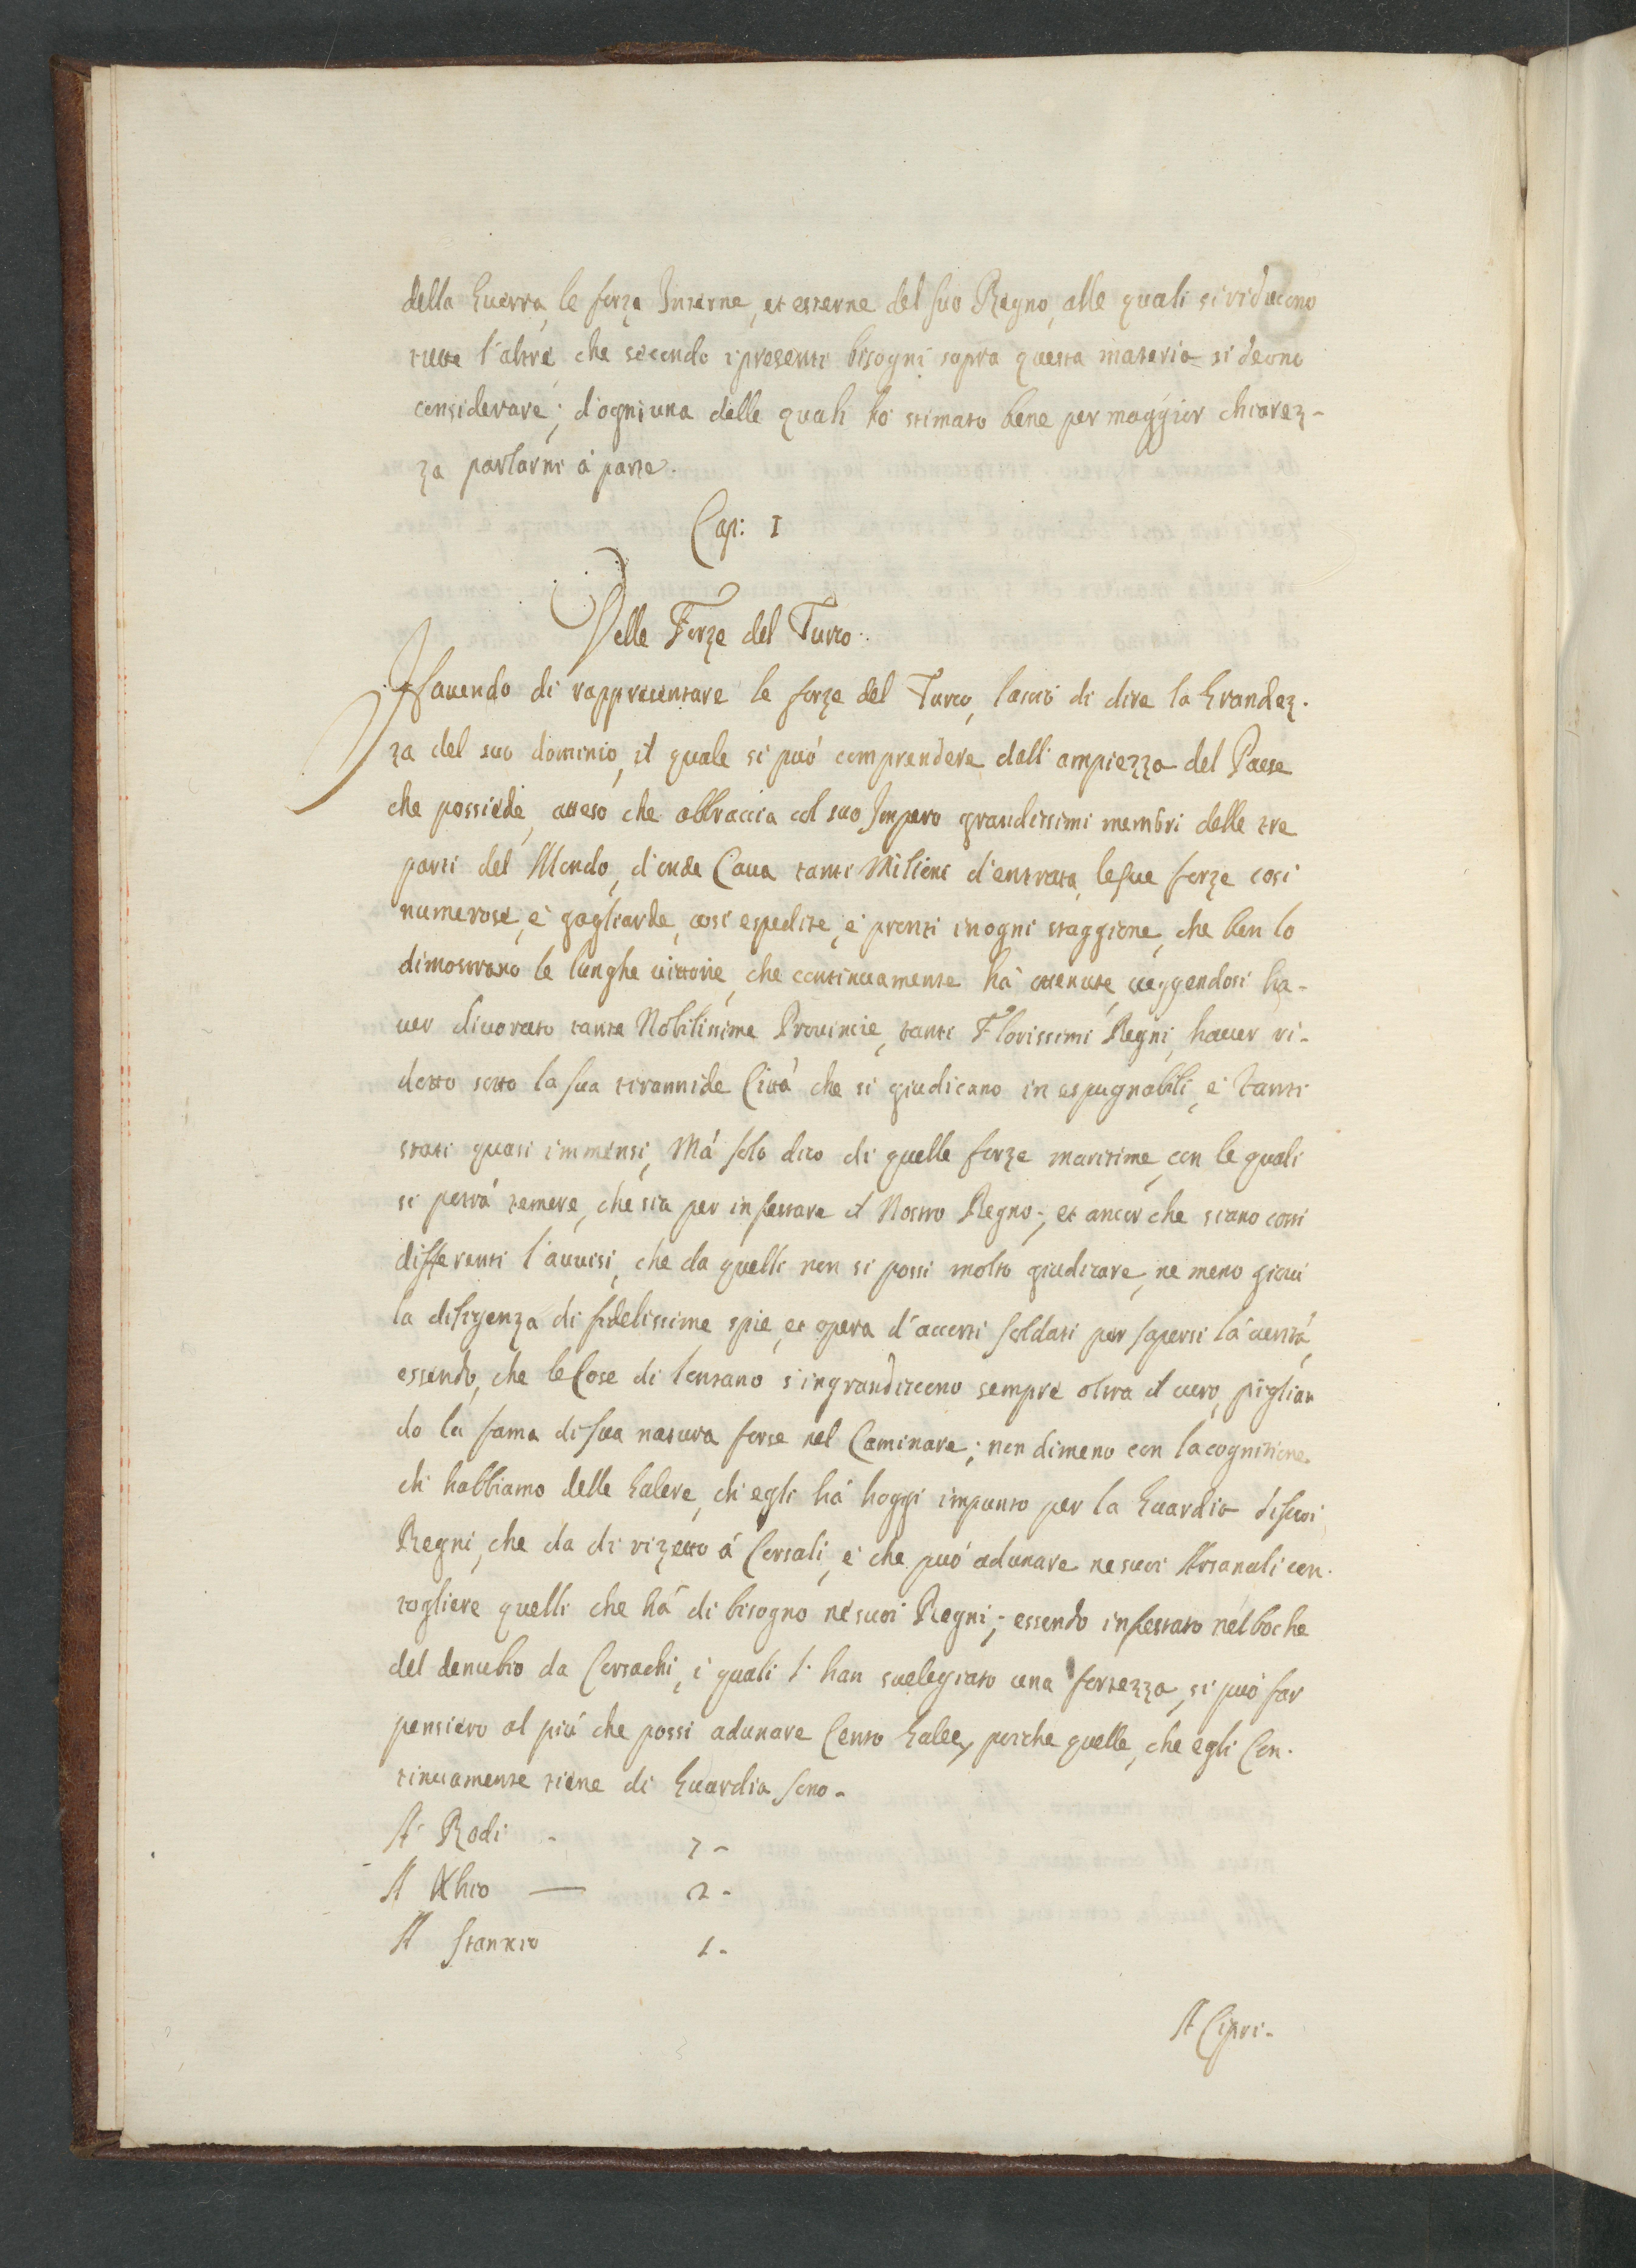 della Guerra, le forze Interne, et esterne del suo Regno, alle quali si riducono
tutte l'altre che secondo i presenti bisogni sopra questa materia si deono
considerare; d'ogniuna delle quali ho stimato bene per maggior chiarez-
za parlarni à parte.
Cap: I
Delle Forze del Turco.
Havendo di rappresentare le forze del Turco, lascio di dire la Grandez-
za del suo dominio, il quale si può comprendere dall'ampiezza del Paese
che possiede, atteso che abbraccia col suo Impero grandissimi membri delle tre
parti del Mondo, d'onde Cava tanti Milioni d'entrata, le sue forze cosi
numerose, e gagliarde, cosi espedite, e pronti in ogni staggione, che ben lo
dimostrano le lunghe vittorie, che continuamente hà ottenute, veggendosi ha-
ver divorato tante Nobilissime Provincie, tanti Florissimi Regni, haver ri-
dotto sotto la sua tirannide Città che si giudicano in espugnabili, e tanti
stati quasi immensi, Mà solo dico di quelle forze maritime, con le quali
si potrà temere, che sia per infestare il Nostro Regno; et ancor che siano cosi
differenti l'avvisi, che da quelli non si possi molto giudicare, ne meno giovi
la diligenza di fidelissime spie, et opera d'accorti soldati per sapersi la verità,
essendo, che le Cose di lontano s'ingrandiscono sempre oltra il vero, piglian
do la fama di sua natura forse nel Caminare; non dimeno con la cognitione
ch habbiamo delle Galere, ch egli hà hoggi impunto per la Guardia di suoi
Regni, che da di rizetto à Corsali, e che può adunare ne suoi Arsanali con
togliere quelli che hà di bisogno ne suoi Regni; essendo infestato nel boche
del denubio da Cosachi, i quali li han svelegiato una fortezza, si può far
pensiero al più che possi adunare Cento Galee, perche quelle, che egli Con-
tinuamente tiene di Guardia sono-
A Rodi - 7 -
A Xhio — 2 -
A Stanxio 1 -
A Cipri-